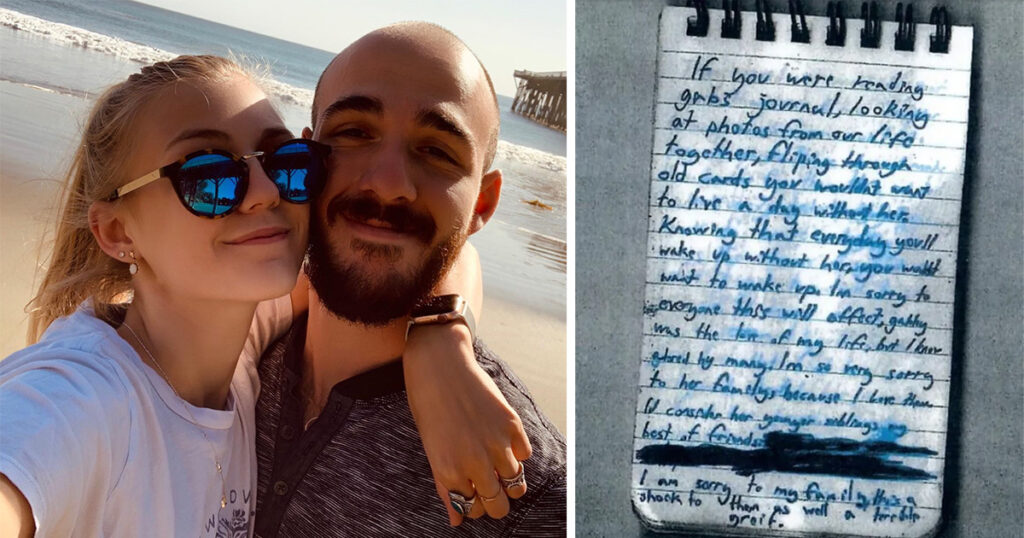 If you were reading
gabs journal, looking
at photos from our life
together, fliping through
old cards you wouldnt want
to live a day without her.
Knowing that everyday you'll
wake up without her, you wouldnt
want to wake up. Im sorry to
everyone this will affect, gabby
was the love of my life, but I know
adored by many. Im so very sorry
to her familys because I love them.
I'd consider her younger siblings my
best of friends.
I am sorry to my family, this is a
shock to them as well a terrible
greif.
W OV